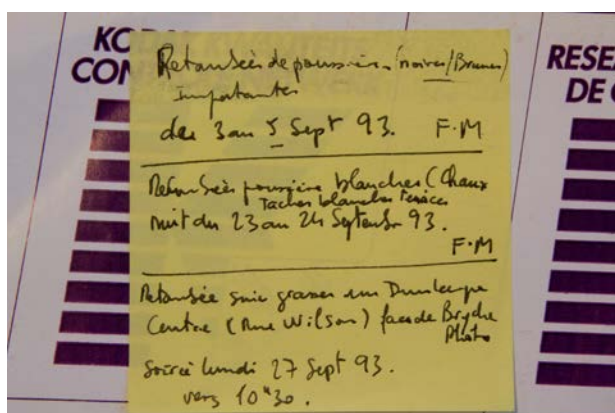 KODAK
CON
RESE
DE
Retombées de poussières (noires/Brunes)
Importantes
du 3 au 5 Sept 93. F.M
Retombées poussière blanches (Chaux
Taches blanches
nuit du 23 au 24 Septembre 93.
F.M
Retombée suie grasse sur Dunkerque
Centre (Rue Wilson) facade Brydre
Photo
Soirée lundi 27 Sept 93.
vers 10h30.